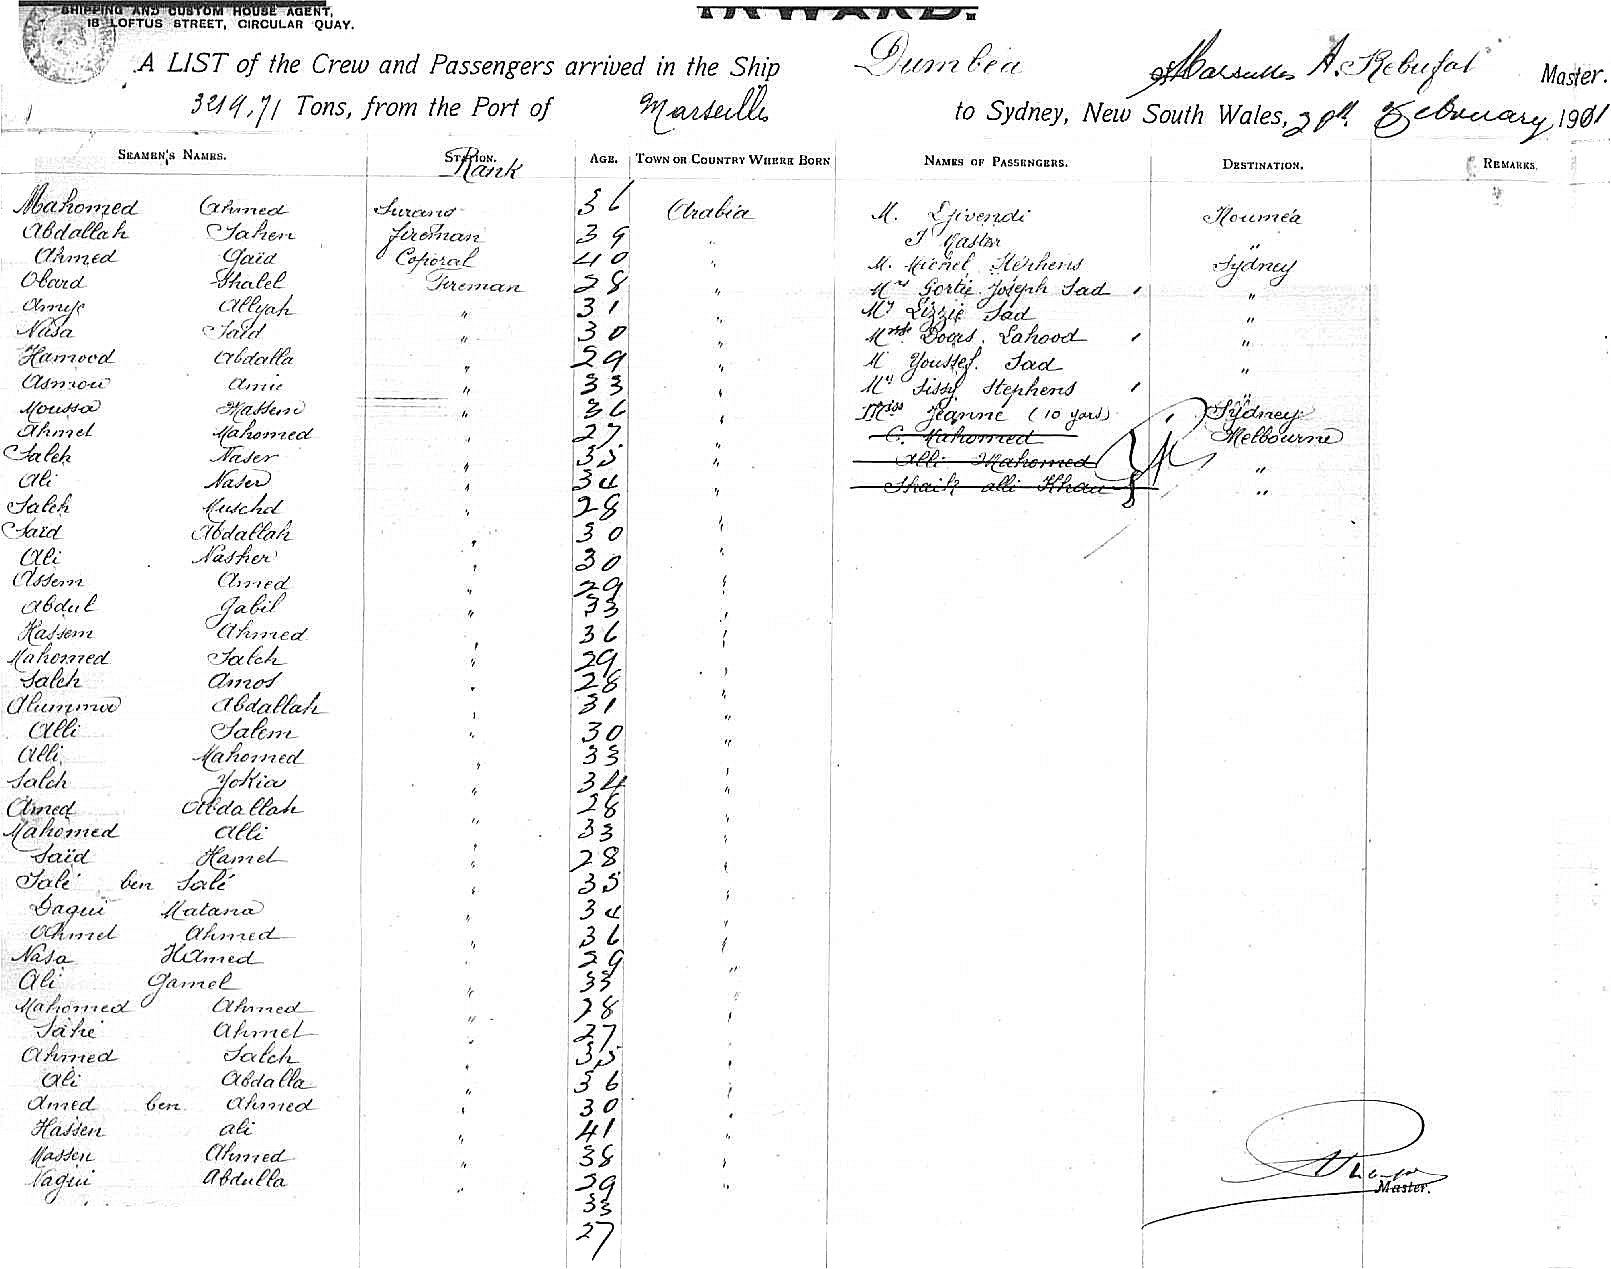 SHIPPING AND CUSTOM HOUSE AGENT,
18 LOFTUS STREET, CIRCULAR QUAY.
INWARD.
A LIST of the Crew and Passengers arrived in the Ship Dumbéa of Marseilles A. Rebufat Master.
3219,71 Tons, from the Port of Marseilles to Sydney, New South Wales, February 1901
SEAMEN'S NAMES. STATION. Rank AGE. TOWN OR COUNTRY WHERE BORN NAMES OF PASSENGERS. DESTINATION. REMARKS.
Mahomed Ahmed 36 Arabia M. Noumea
Abdallah Sahen fireman 39 " "
Ahmed Gaid Coporal 40 " M. Michel Sydney
Obard Shalel Fireman 28 " Mrs Gortie Joseph Sad "
Allyah " 31 " Lizzie Sad "
Nasa Said " 30 " Lahood "
Hamood Abdalla " 29 " M Youssef. Sad "
Amie " 33 " Sissy Stephens "
Moussa Hassem " 36 " Miss Jeanne (10 yars) Sydney
Ahmet Mahomed " 27 " C. Mahomed Melbourne
Saleh Naser " 35 " Alli Mahomed "
Ali Naser " 34 " Shaik alli Khan "
Saleh Muschd " 28 "
Said Abdallah " 30 "
Ali Nasher " 30 "
Assem Amed " 29 "
Abdul Gabil " 33 "
Hassem Ahmed " 36 "
Mahomed Saleh " 29 "
Saleh Amos " 28 "
Abdallah " 31 "
Alli Salem " 30 "
Alli Mahomed " 33 "
Saleh Yokia " 34 "
Amed Abdallah " 28 "
Mahomed Alli " 33 "
Said Hamet " 28 "
Salé ben Salé " 35 "
Dagui Matana " 34 "
Ahmet Ahmed " 36 "
Nasa Hamed " 29 "
Ali Gamel " 35 "
Mahomed Ahmed " 28 "
Sahé Ahmet " 27 "
Ahmed Saleh " 35 "
Ali Abdalla " 36 "
Amed ben Ahmed " 30 "
Hassen ali " 41 "
Massen Ahmed " 38 "
Nagui Abdulla " 39 "
Master.
33
27